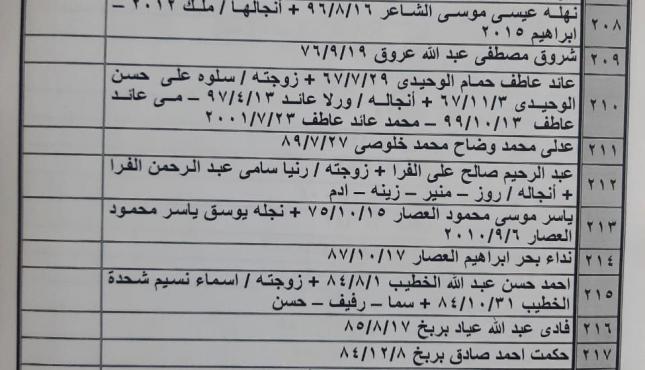 ٢٠٨ نهله عيسى موسى الشاعر ٩٦/٨/١٦ + أنجالها / ملك ٢٠١٢ –
ابراهيم ٢٠١٥
٢٠٩ شروق مصطفى عبد الله عروق ٧٦/٩/١٩
٢١٠ عائد عاطف حمام الوحيدى ٦٧/٧/٢٩ + زوجته / سلوه على حسن
الوحيدى ٦٧/١١/٣ + أنجاله / ورلا عائد ٩٧/٤/١٣ – مى عائد
عاطف ٩٩/١٠/١٣ – محمد عائد عاطف ٢٠٠١/٧/٢٣
٢١١ عدلى محمد وضاح محمد خلوصى ٨٩/٧/٢٧
٢١٢ عبد الرحيم صالح على الفرا + زوجته / رنيا سامى عبد الرحمن الفرا
+ أنجاله / روز – منير – زينه – ادم
٢١٣ ياسر موسى محمود العصار ٧٥/١٠/١٥ + نجله يوسق ياسر محمود
العصار ٢٠١٠/٩/٦
٢١٤ نداء بحر ابراهيم العصار ٨٧/١٠/١٧
٢١٥ احمد حسن عبد الله الخطيب ٨٤/٨/١ + زوجته / اسماء نسيم شحدة
الخطيب ٨٤/١٠/٣١ + سما – رفيف – حسن
٢١٦ فادى عبد الله عياد بربخ ٨٥/٨/١٧
٢١٧ حكمت احمد صادق بربخ ٨٤/١٢/٨